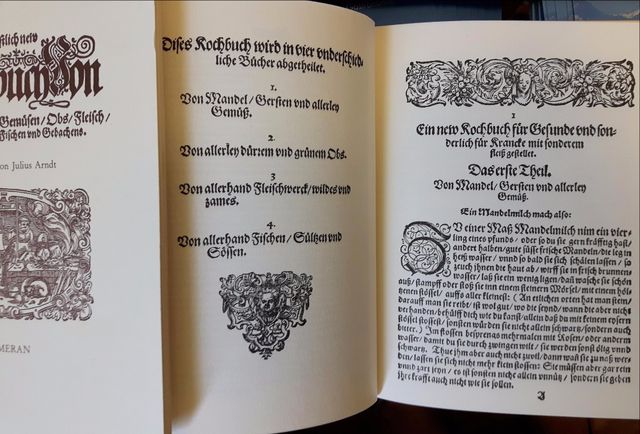 tlich new
buch Von
Gemüsen / Obs / Fleisch /
Fischen vnd Gebachens.
on Julius Arndt
MERAN
Dises Kochbuch wird in vier vnderschid-
liche Bücher abgetheilet.
1.
Von Mandel / Gersten vnd allerley
Gemüß.
2.
Von allerley dürrem vnd grünem Obs.
3
Von allerhand Fleischwerck / wildes vnd
zames.
4.
Von allerhand Fischen / Sültzen vnd
Sössen.
1
Ein new Kochbuch für Gesunde vnd son-
derlich für Krancke mit sonderem
fleiß gestellet.
Das erste Theil.
Von Mandel / Gersten vnd allerley
Gemüß.
Ein Mandelmilch mach also:
ZV einer Maß Mandelmilch nim ein vier-
ling eines pfunds / oder so du sie gern kräfftig hast /
anderhalben / gute süsse frische Mandeln / die leg in
heiß wasser / vnnd so bald sie sich schälen lassen / so
zeuch ihnen die haut ab / wirff sie in frisch brunnen-
wasser / laß sie ein wenig ligen / daß wasche sie schön
auß / stampff oder stoß sie inn einem steinern Mörsel / mit einem höl-
tzenen stössel / auffs aller kleinest: (An etlichen orten hat man stein /
darauff man sie reibt / ist wol gut / wo die seynd / wann die aber nicht
verhanden / behülff dich wie du kanst / allein daß du mit keinem eysern
stössel stossest / sonsten würden sie nicht allein schwartz / sondern auch
bitter.) Im stossen besprenge mehrmalen mit Rosen / oder anderem
wasser / damit du sie durch zwingen wilt / sie werden sonst ölig vnnd
schwartz. Thue ihm aber auch nicht zuvil / dann waß sie zu naß wer-
den / lassen sie sich nicht mehr klein stossen: Sie müssen aber gar rein
vnnd zart seyn / es ist sonsten nicht allein vnnütz / sondern sie geben
ihre krafft auch nicht wie sie sollen.